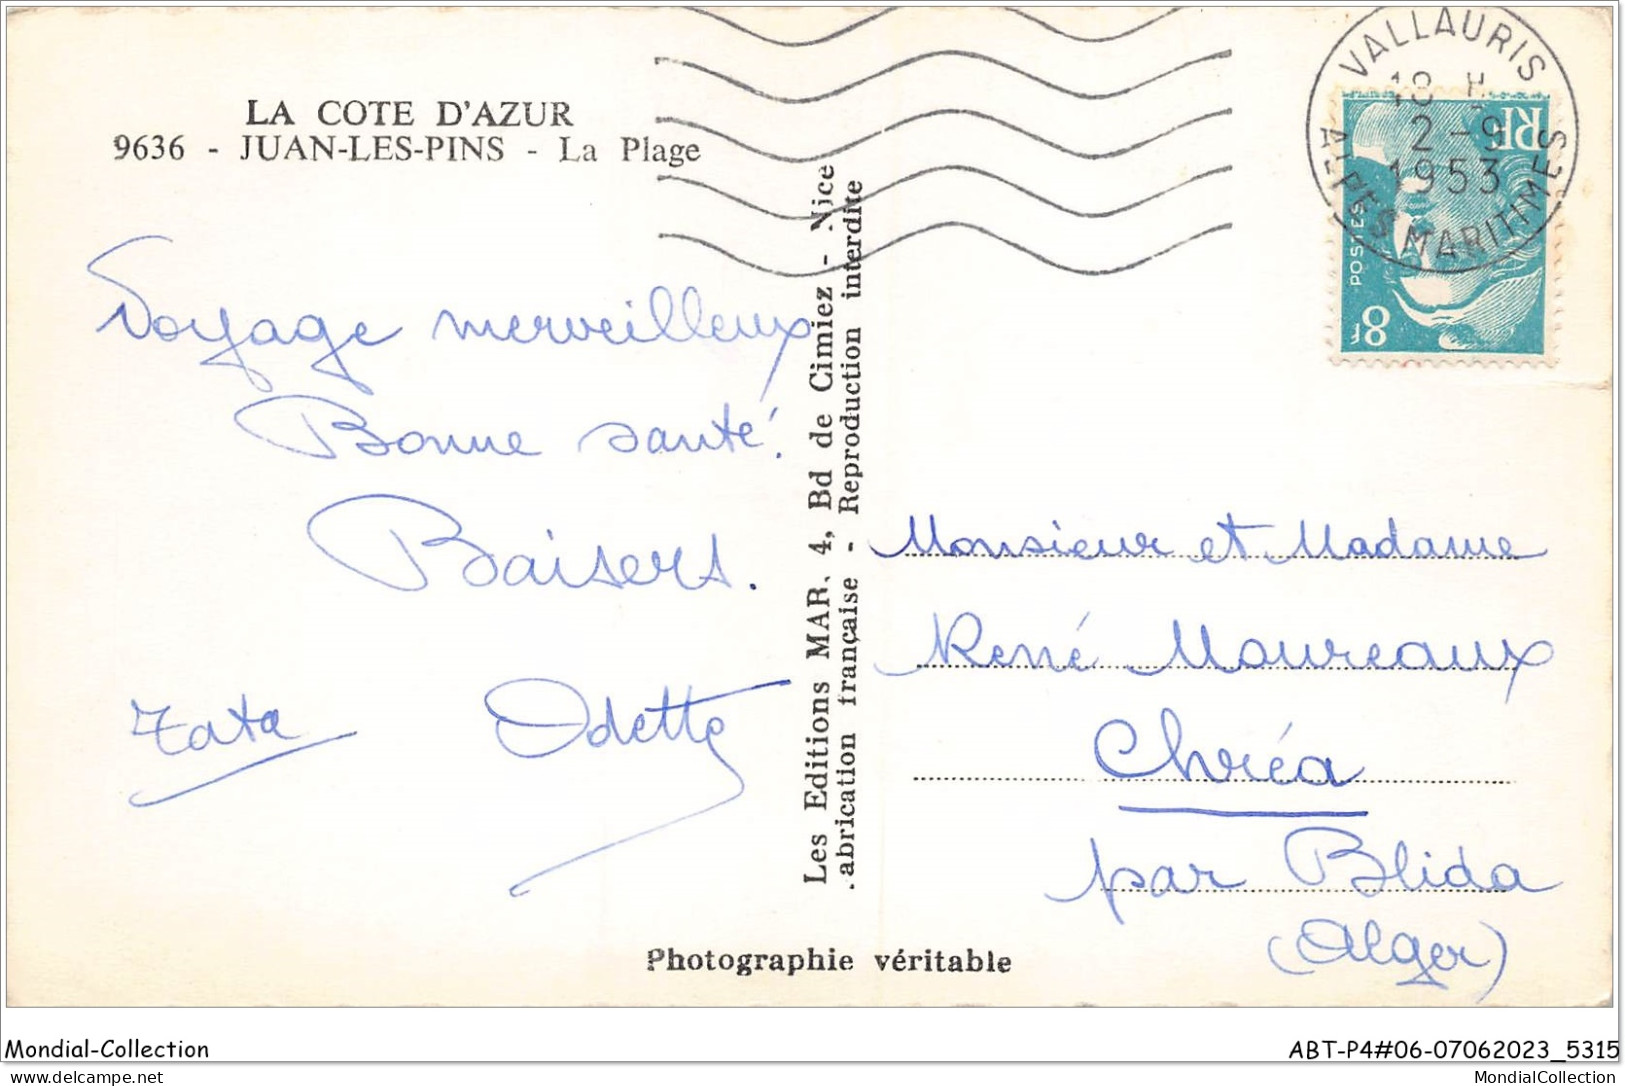 LA COTE D'AZUR
9636 - JUAN-LES-PINS - La Plage
Voyage merveilleux
Bonne santé !
Baisers.
Tata Odette
Les Editions MAR. 4, Bd de Cimiez - Nice
abrication française - Reproduction interdite
VALLAURIS
18 H
2 - 9
1953
ALPES MARITIMES
RF
POSTES
8F
Monsieur et Madame
René Moureaux
Chréa
par Blida
(Alger)
Photographie véritable
Mondial-Collection
ABT-P4#06-07062023_5315
delcampe.net
MondialCollection